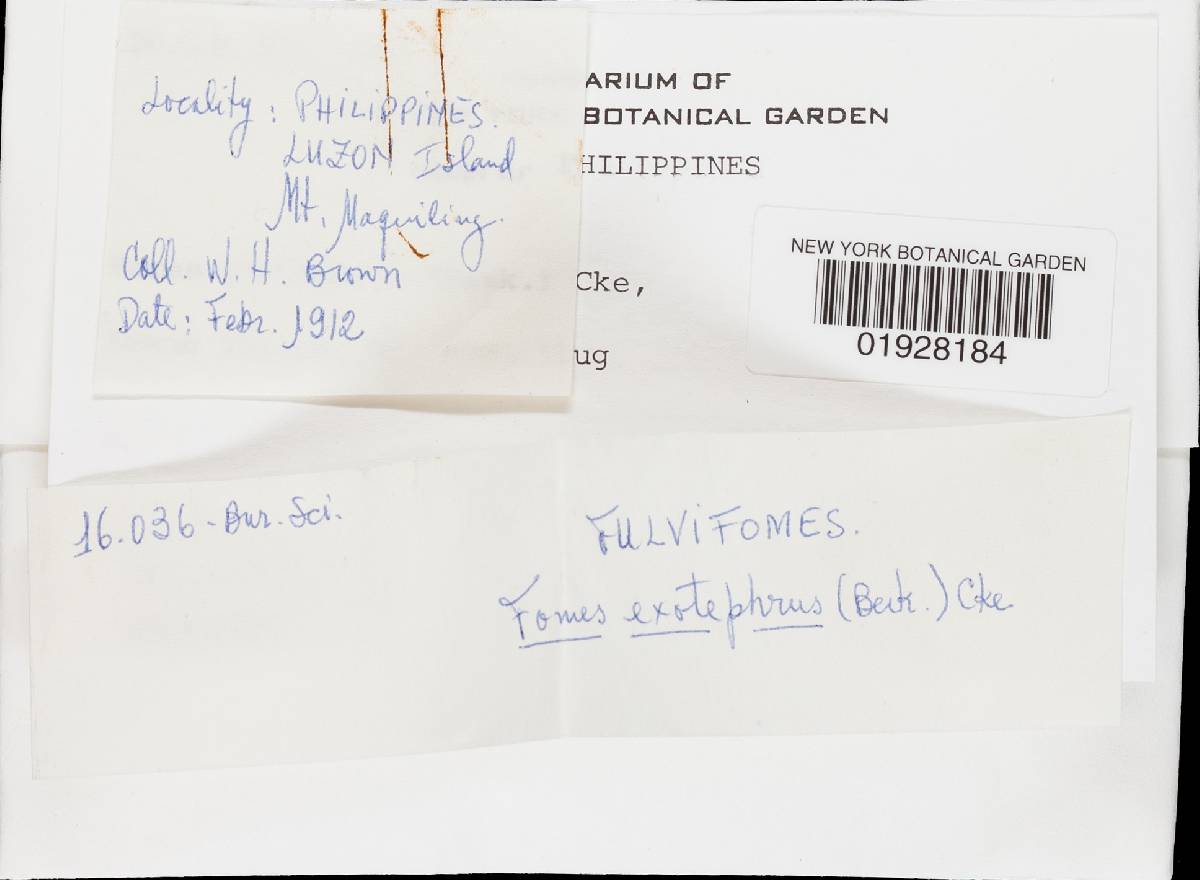 Locality: PHILIPPINES.
LUZON Island
Mt. Maquiling.
Coll. W. H. Brown
Date: Febr. 1912
ARIUM OF
BOTANICAL GARDEN
HILIPPINES
Cke,
ug
NEW YORK BOTANICAL GARDEN
01928184
16.036 - Bur. Sci.
FULVIFOMES.
Fomes exotephrus (Berk.) Cke